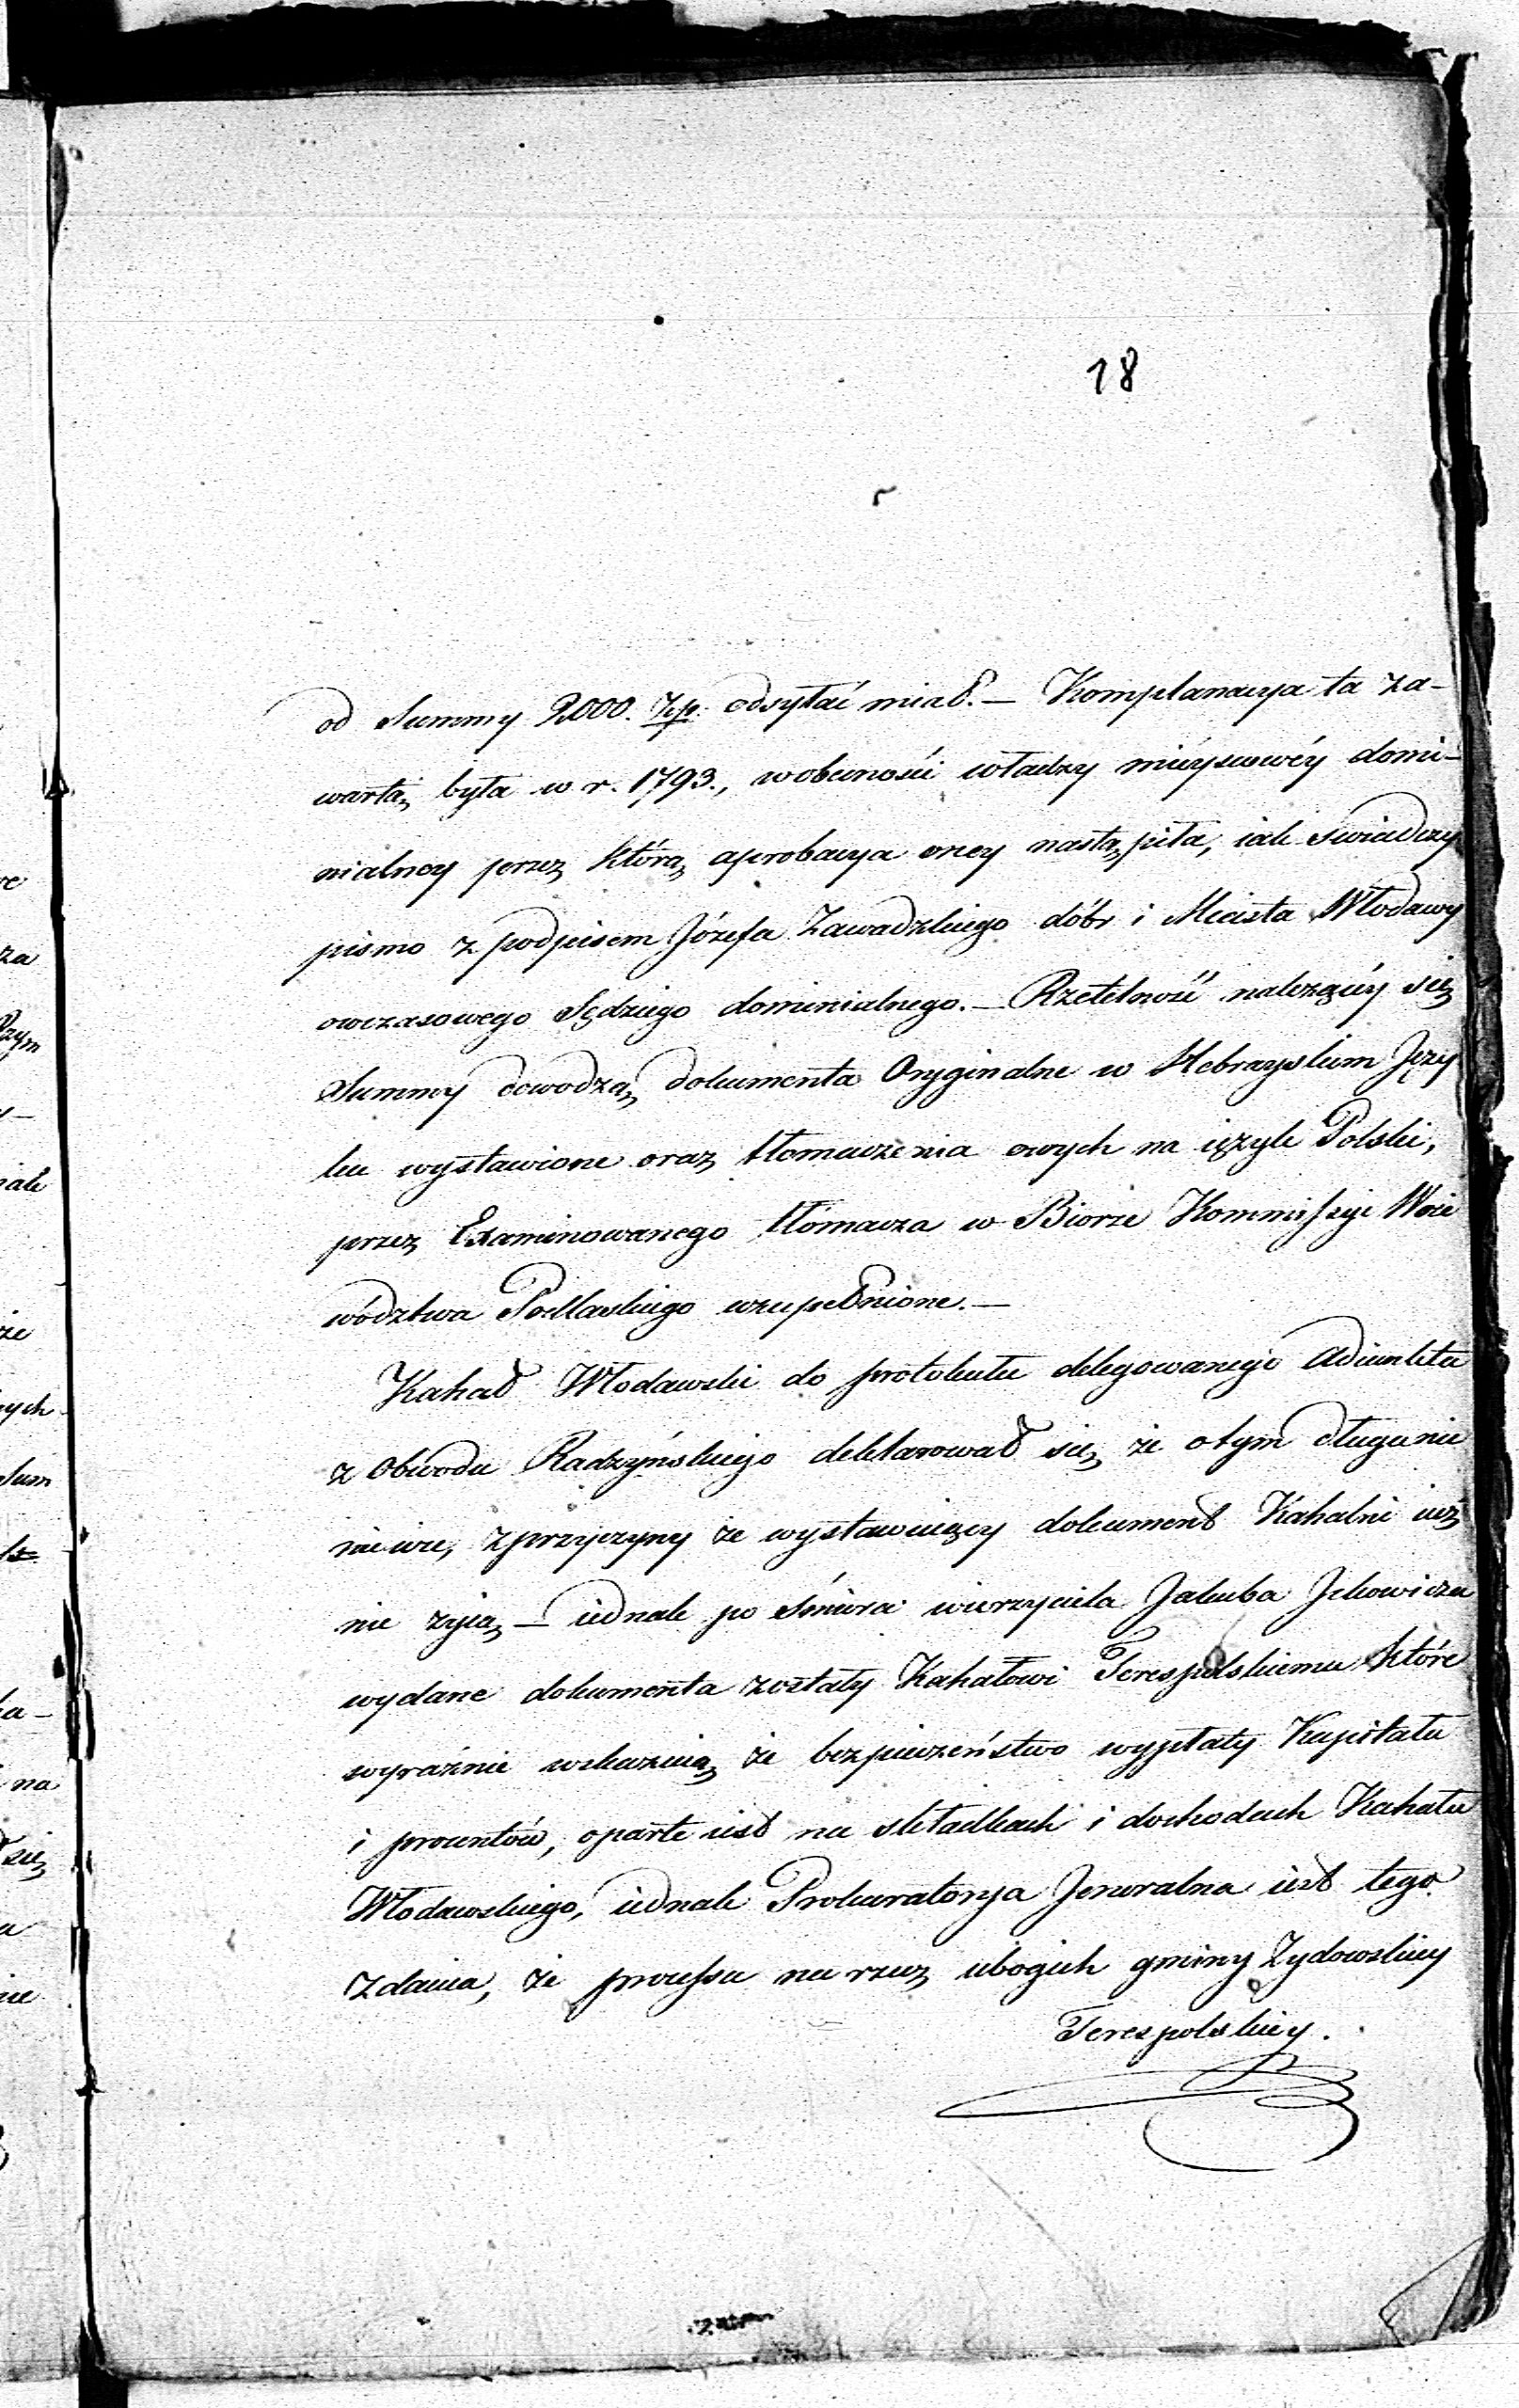 18
od Summy 2000. Złp. odsyłać miał. — Komplanacya ta za-
wartą była w r. 1793., w obecności władzy mieyscowéy domi-
nialney przez którą aprobacya oney nastąpiła, iak swiadczy
pismo z podpisem Józefa Zawadzkiego dóbr i Miasta Włodawy
owczasowego Sędziego dominialnego. — Rzetelność należącéy się
Summy dowodzą dokumenta Oryginalne w Hebrayskim Języ
ku wystawione oraz tłomaczenia owych na ięzyk Polski,
przez Examinowanego tłómacza w Biorze Kommissyi Woie
wództwa Podlaskiego uzupełnione. —
Kahał Włodawski do protokułu delegowanego Adiunkta
z Obwodu Radzyńskiego deklarował się, że o tym długu nic
nie wie, z przyczyny że wystawuiący dokument Kahalni iuż
nie żyią, — iednak po śmierci wierzyciela Jakuba Jckowicza
wydane dokumenta zostały Kahałowi Terespolskiemu które
wyraźnie wskazuią, że bezpieczeństwo wypłaty Kapitału
i procentów, oparte iest na składkach i dochodach Kahału
Włodawskiego, iednak Prokuratorya Jeneralna iest tego
zdania, że processu na rzecz ubogich gminy Żydowskiey
Terespolskiey.